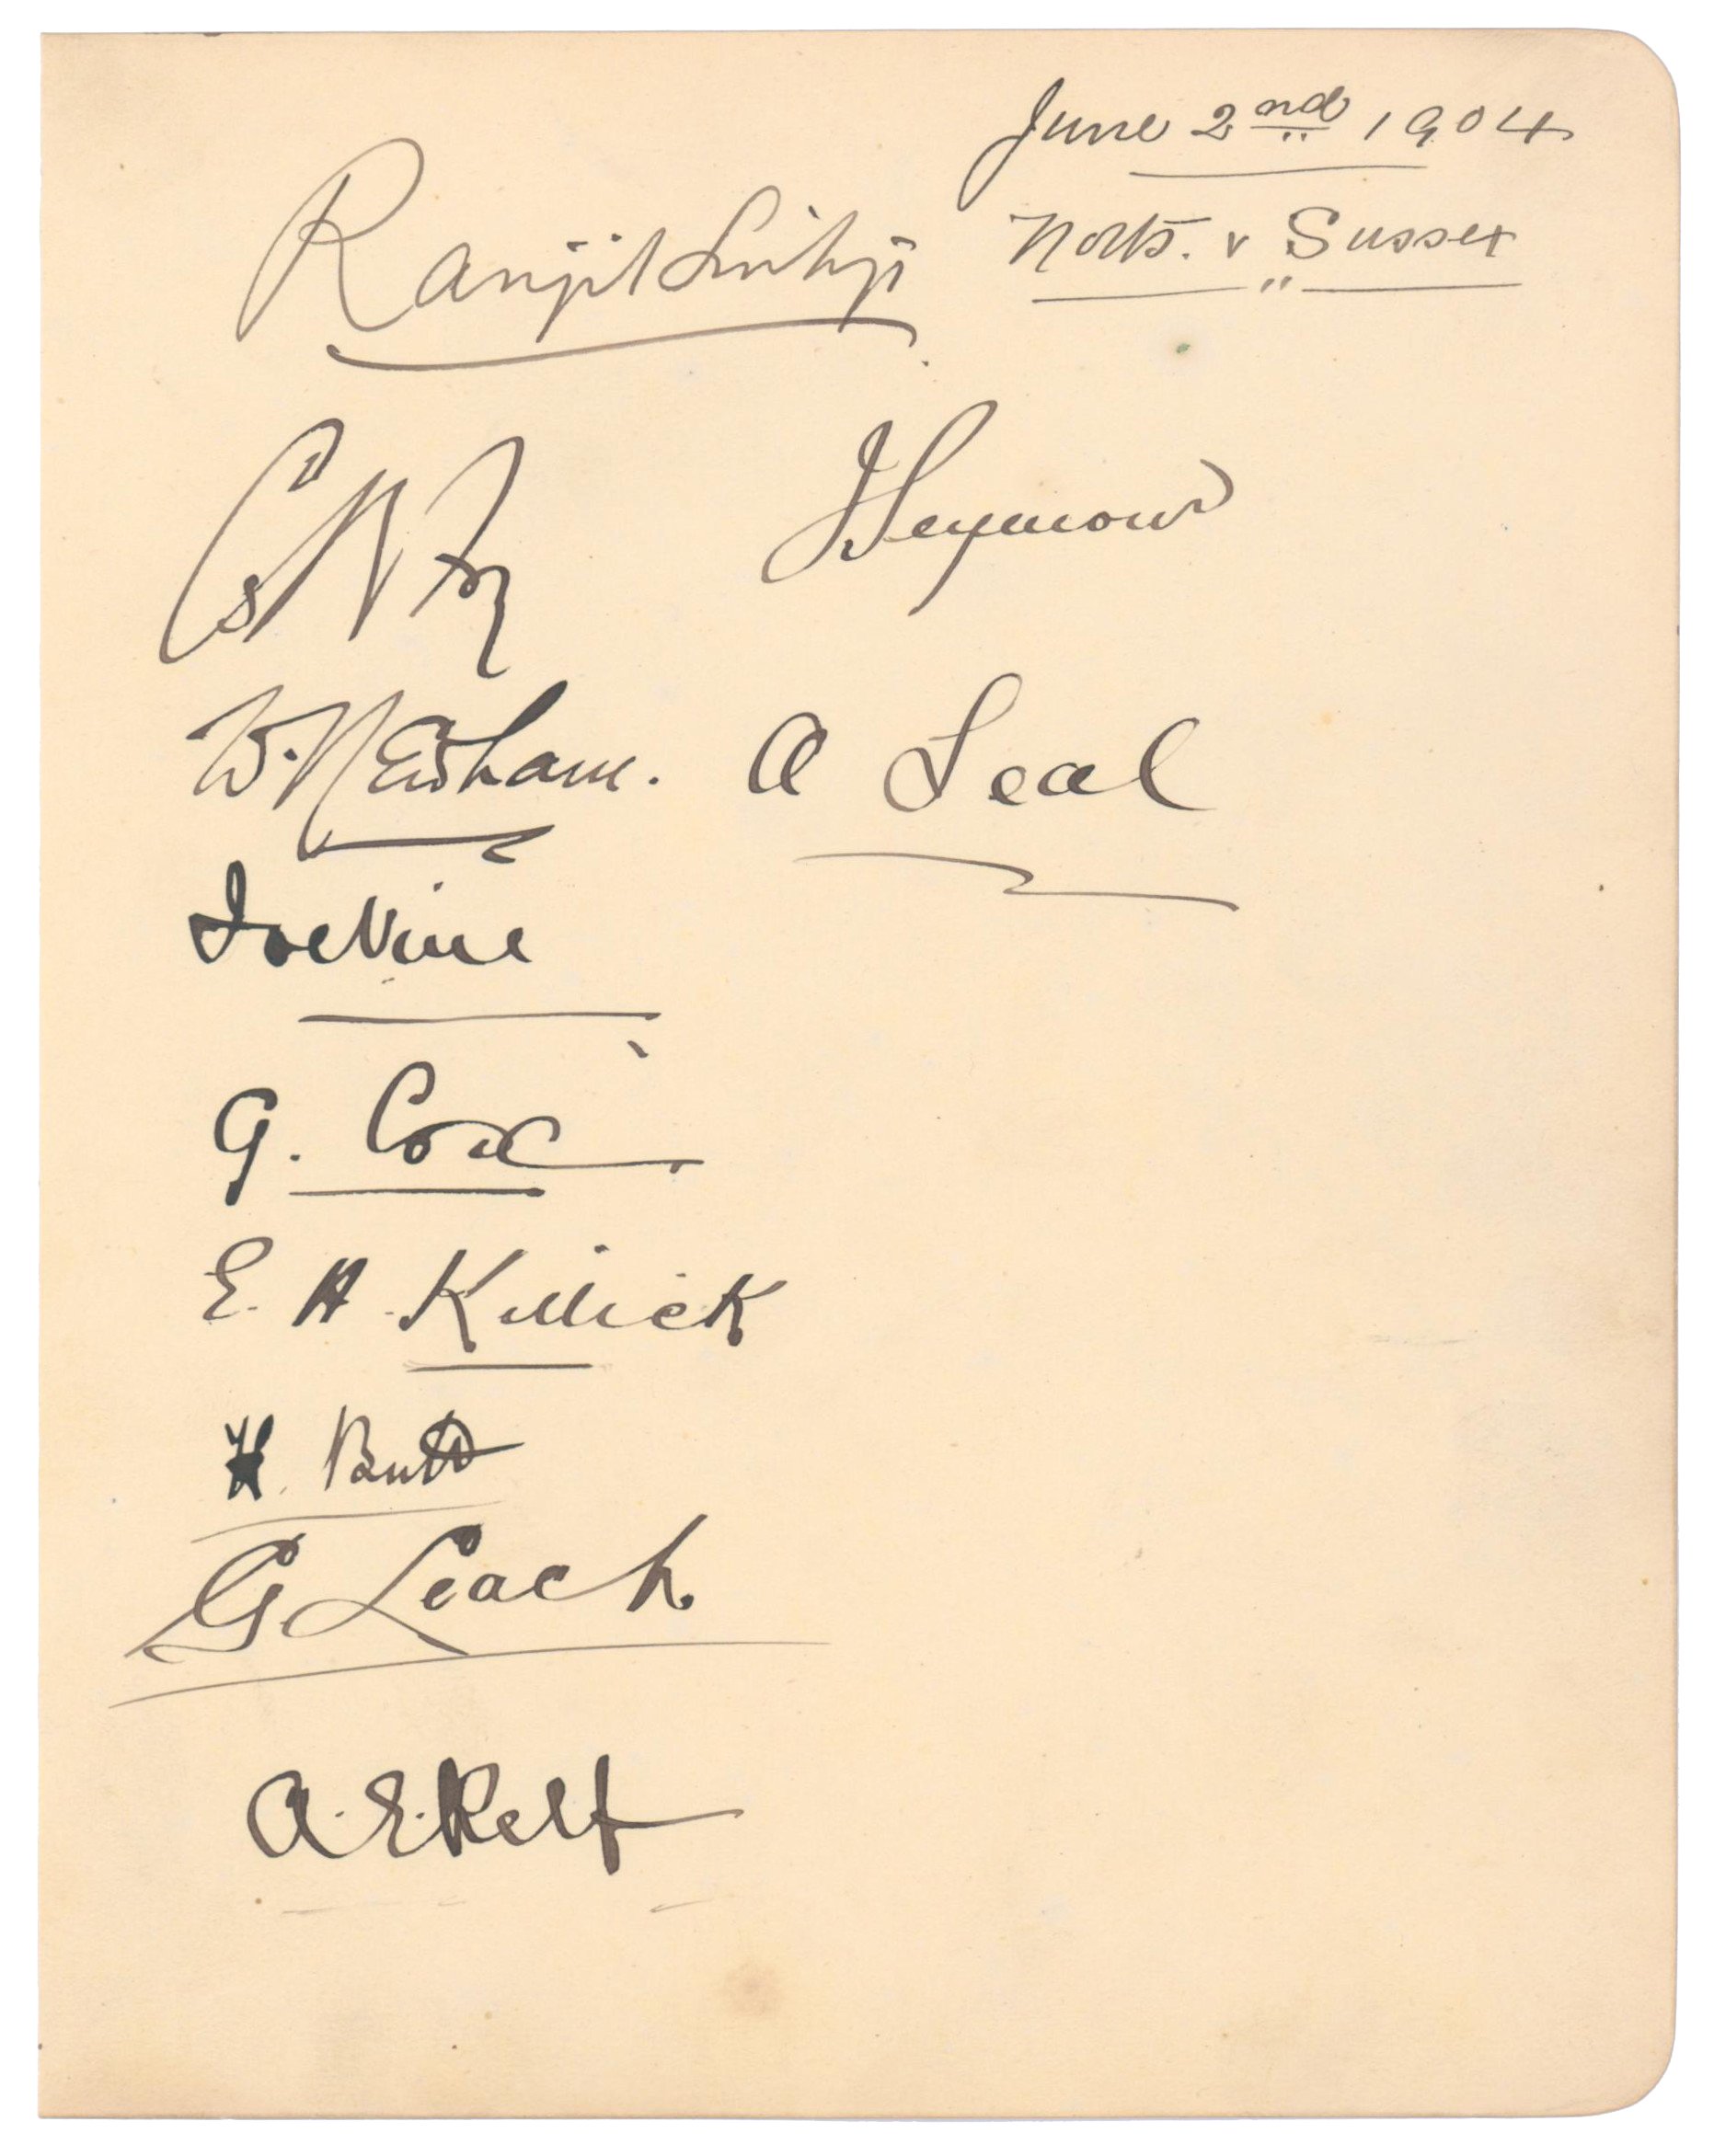 June 2nd 1904
Notts. v Sussex
Ranjitsinhji
C B Fry
J Seymour
W. Newham.
A Leal
Joe Vine
G. Cox
E. H. Killick
H. Butt
G Leach.
A. E. Relf